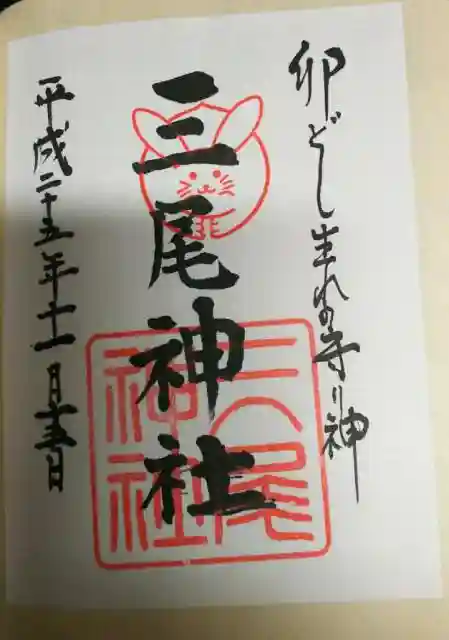 卯どし生れの守り神
三尾神社
三尾神社
平成二十五年十一月十五日